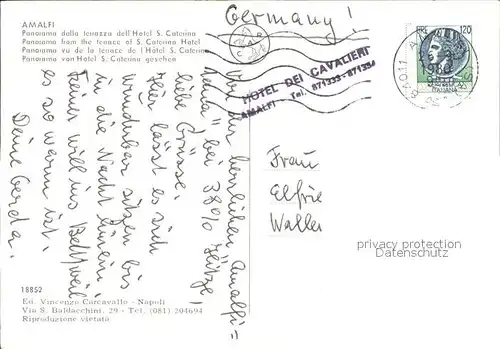 AMALFI
Panorama dalla terrazza dell'Hotel S. Caterina
Panorama from the terrace of S. Caterina Hotel
Panorama vu de la terrace de l'Hotel S. Caterina
Panorama von Hotel S. Caterina gesehen
Germany!
LIRE 120
HOTEL DEI CAVALIERI
AMALFI - Tel. 871333-871334
Von der herrlichen "Amalfi=
küste" bei 38% Hitze!
liebe Grüsse.
Hier lässt es sich
wunderbar sitzen bis
in die Nacht hinein
Keiner will ins Bett, weil
es so warm ist.
Deine Gerda.
Frau
Elfrie
Waller
privacy protection
Datenschutz
18852
Ed. Vincenzo Carcavallo - Napoli
Via S. Baldacchini, 29 - Tel. (081) 204694
Riproduzione vietata